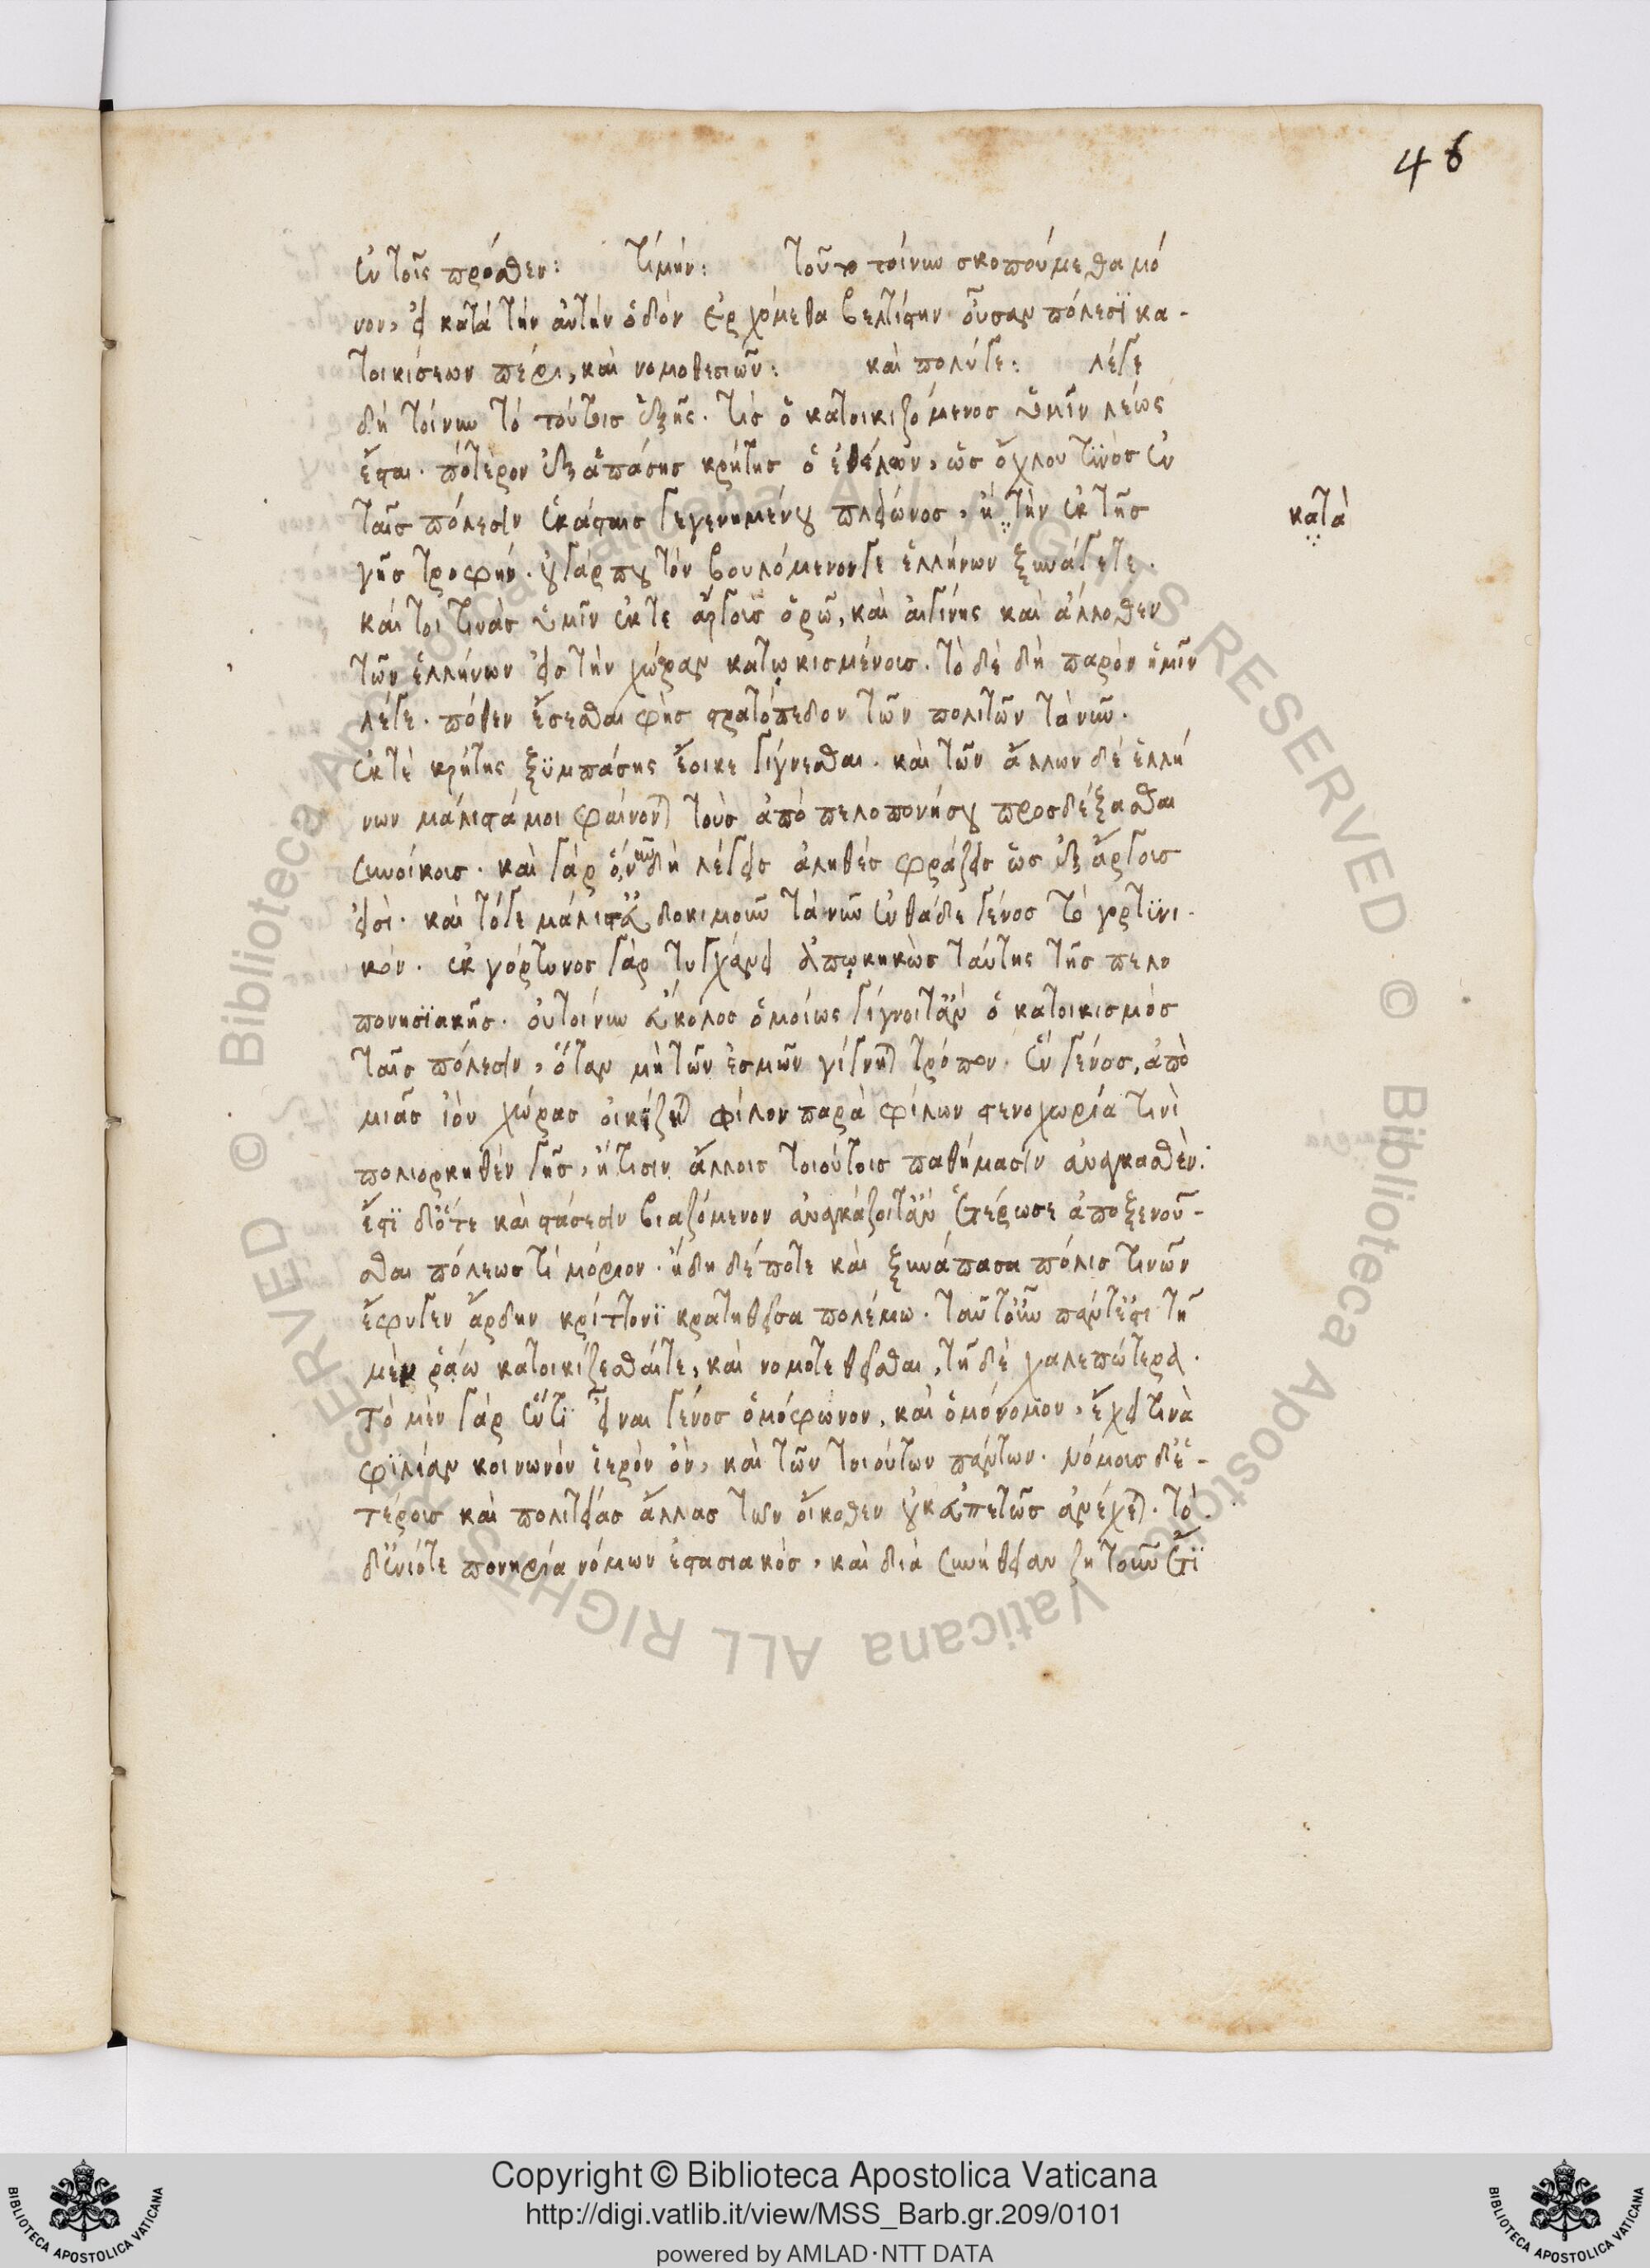 46
ἐν τοῖς πρόσθεν: τί μήν: τοῦτο τοίνυν σκοπούμεθα μό
νον, εἰ κατὰ τὴν αὐτὴν ὁδὸν ἐρχόμεθα βελτίστην οὖσαν πόλεσϊ κα-
τοικίσεων πέρι, καὶ νομοθεσιῶν: καὶ πολύγε: λέγε
δὴ τοίνυν τὸ τούτοις ἑξῆς. τίς ὁ κατοικιζόμενος ὑμῖν λεώς
ἔσται. πότερον ἐξ ἁπάσης κρήτης ὁ ἐθέλων, ὡς ὄχλου τινὸς ἐν
ταῖς πόλεσιν ἑκάσταις γεγενημένου πλείωνος, ἢ τὴν ἐκ τῆς
κατὰ
γῆς τροφήν. οὐ γάρ που τὸν βουλόμενόν γε ἑλλήνων ξυνάγετε.
καί τοι τινὰς ὑμῖν ἔκ τε ἄργους ὁρῶ, καὶ αἰγίνης καὶ ἄλλοθεν
τῶν ἑλλήνων εἰς τὴν χώραν κατῳκισμένοις. τὸ δὲ δὴ παρὸν ἡμῖν
λέγε. πόθεν ἔσεσθαι φῂς στρατόπεδον τῶν πολιτῶν τὰ νῦν.
ἔκ τε κρήτης ξϋμπάσης ἔοικε γίγνεσθαι. καὶ τῶν ἄλλων δὲ ἑλλή
νων μάλιστά μοι φαίνονται τοὺς ἀπὸ πελοπονήσου προσδέξασθαι
συνοίκοις. καὶ γὰρ ὃ νῦν δὴ λέγεις ἀληθὲς φράζεις ὡς ἐξ ἄργοις
εἰσί. καὶ τό γε μάλιστα δοκιμοῦν τὰ νῦν ἐνθάδε γένος τὸ γορτϋνι-
κόν. ἐκ γόρτυνος γὰρ τυγχάνει ἀπῳκηκὼς ταύτης τῆς πελο
πονησϊακῆς. οὐ τοίνυν εὔκολος ὁμοίως γίγνοιτ' ἂν ὁ κατοικισμὸς
ταῖς πόλεσιν, ὅταν μὴ τῶν ἑσμῶν γίγνηται τρόπον. ἓν γένος, ἀπὸ
μιᾶς ἰὸν χώρας οἰκίζηται φίλον παρὰ φίλων στενοχωρία τινὶ
πολιορκηθὲν γῆς, ἤ τισιν ἄλλοις τοιούτοις παθήμασιν ἀναγκασθέν.
ἔστϊ δ' ὅτε καὶ στάσεσιν βιαζόμενον ἀναγκάζοιτ' ἂν ἑτέρωσε ἀποξενοῦ-
σθαι πόλεως τι μόριον. ἤδη δέ ποτε καὶ ξυνάπασα πόλις τινῶν
ἔφυγεν ἄρδην κρίττονϊ κρατηθεῖσα πολέμω. ταῦτ' οὖν πάντ' ἐστι τῆ
μὲν ῥάω κατοικίζεσθαί τε, καὶ νομοτεθεῖσθαι, τῆ δὲ χαλεπώτερα.
τὸ μὲν γὰρ ἕν τι εἶναι γένος ὁμόφωνον, καὶ ὁμόνομον, ἔχει τινὰ
φιλίαν κοινωνὸν ἱερὸν ὂν, καὶ τῶν τοιούτων πάντων. νόμοις δ' ἑ-
τέροις καὶ πολιτείας ἄλλας τῶν οἴκοθεν οὐκ εὐπετῶς ἀνέχεται. τὸ
δ' ἐνίοτε πονηρία νόμων ἐστασιακὸς, καὶ διὰ συνήθειαν ζητοῦν ἔτϊ
Copyright © Biblioteca Apostolica Vaticana
http://digi.vatlib.it/view/MSS_Barb.gr.209/0101
powered by AMLAD·NTT DATA
BIBLIOTECA APOSTOLICA VATICANA
BIBLIOTECA APOSTOLICA VATICANA
© Biblioteca Apostolica Vaticana ALL RIGHTS RESERVED © Biblioteca Apostolica Vaticana ALL RIGHTS RESERVED